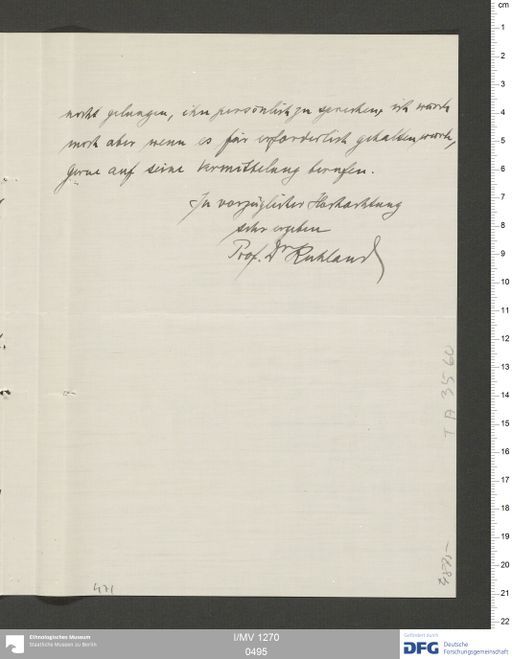 nicht gelungen, ihn persönlich zu sprechen, ich würde
mich aber, wenn es für erforderlich gehalten würde,
gerne auf seine Vermittelung berufen.
In vorzüglicher Hochachtung
sehr ergeben
Prof. Dr Ruhland
I A 35 60
471
cm
1
2
3
4
5
6
7
8
9
10
11
12
13
14
15
16
17
18
19
20
21
22
Ethnologisches Museum
Staatliche Museen zu Berlin
I/MV 1270
0495
Gefördert durch
DFG Deutsche
Forschungsgemeinschaft